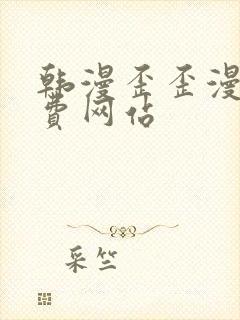 韩漫歪歪漫
费网站
采竺